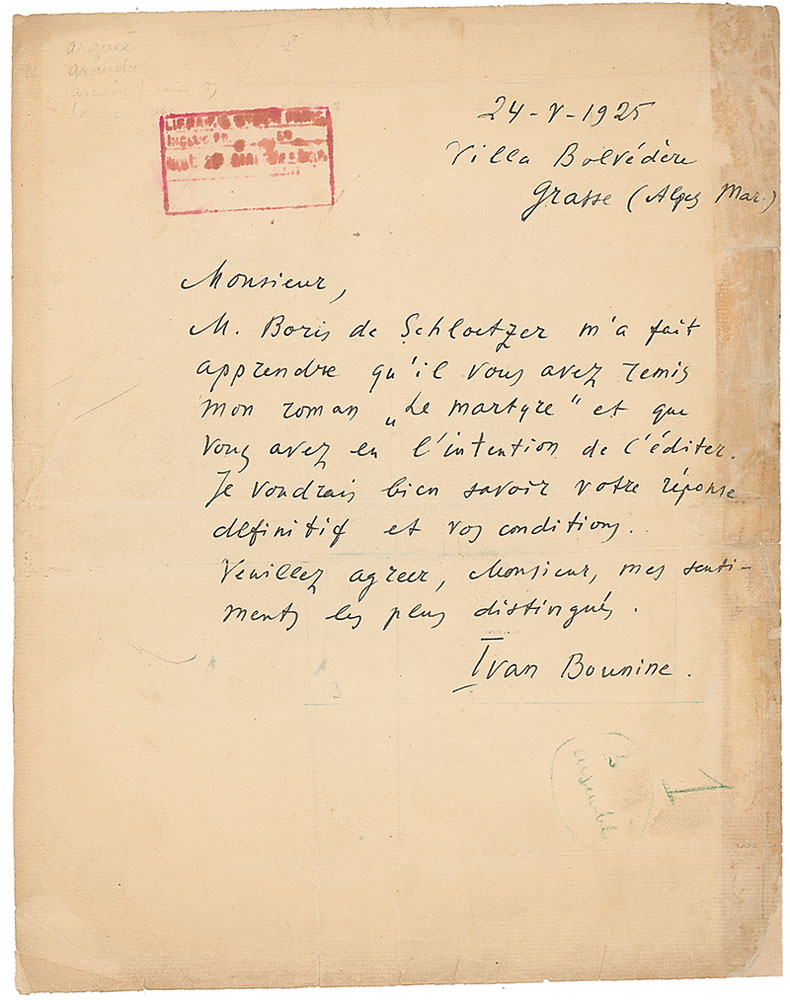 24-V-1925
Villa Belvédère
Grasse (Alpes Mar.)
Monsieur,
M. Boris de Schloetzer m'a fait
apprendre qu'il vous avez remis
mon roman „Le martyre" et que
vous avez eu l'intention de l'éditer.
Je voudrais bien savoir votre réponse
definitif et vos conditions.
Veuillez agreer, Monsieur, mes senti-
ments les plus distingués.
Ivan Bounine.
3
3
ensemble
1